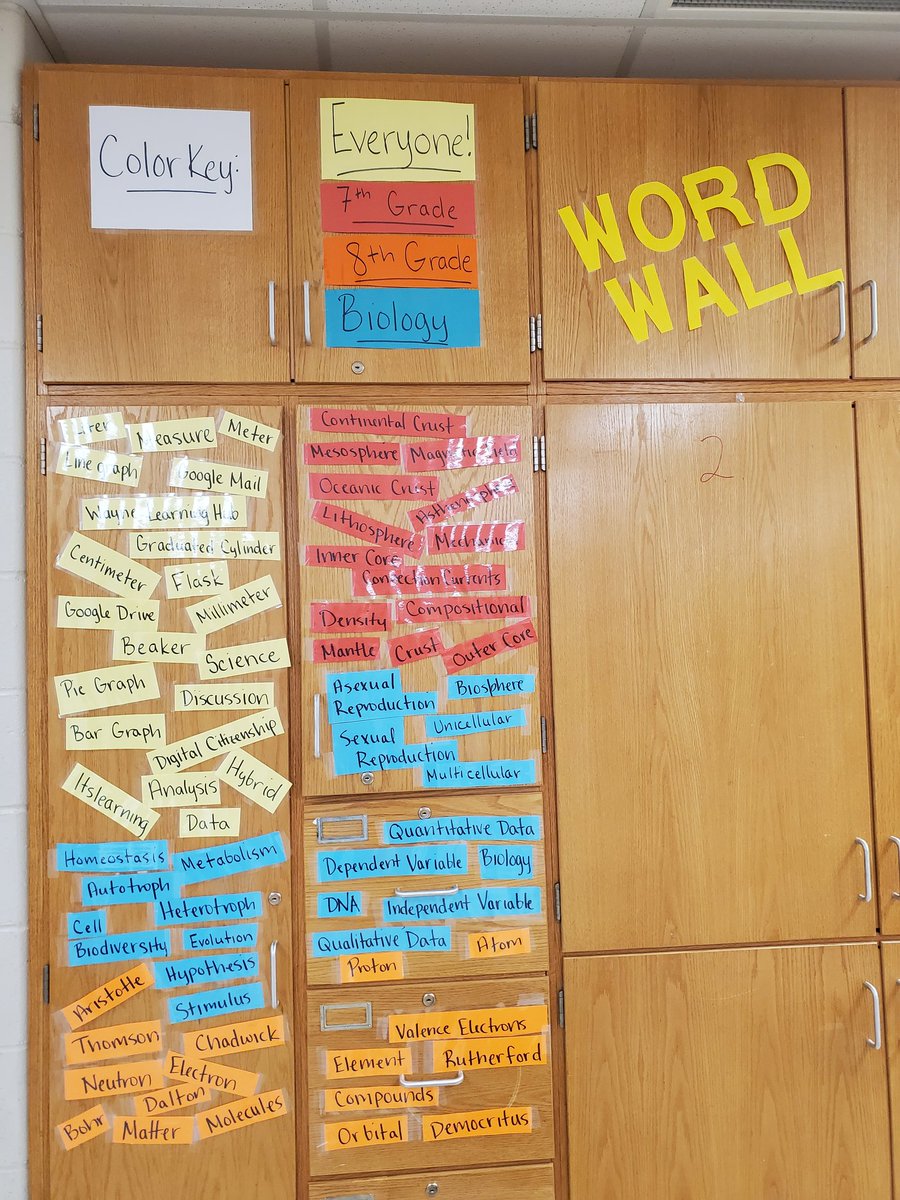 Color Key:
Everyone!
7th Grade
8th Grade
Biology
WORD
WALL
2
Measure
Meter
Line graph
Google Mail
Wayne Learning Hub
Graduated Cylinder
Centimeter
Flask
Millimeter
Google Drive
Beaker
Science
Pie Graph
Discussion
Bar Graph
Digital Citizenship
Hybrid
Itslearning
Analysis
Data
Homeostasis
Metabolism
Autotroph
Heterotroph
Cell
Biodiversity
Evolution
Hypothesis
Stimulus
Aristotle
Thomson
Chadwick
Neutron
Electron
Dalton
Bohr
Matter
Molecules
Continental Crust
Mesosphere
Magnetic Field
Oceanic Crust
Asthenosphere
Lithosphere
Mechanical
Inner Core
Convection Currents
Density
Compositional
Mantle
Crust
Outer Core
Asexual
Reproduction
Biosphere
Unicellular
Sexual
Reproduction
Multicellular
Quantitative Data
Dependent Variable
Biology
DNA
Independent Variable
Qualitative Data
Atom
Proton
Valence Electrons
Element
Rutherford
Compounds
Orbital
Democritus